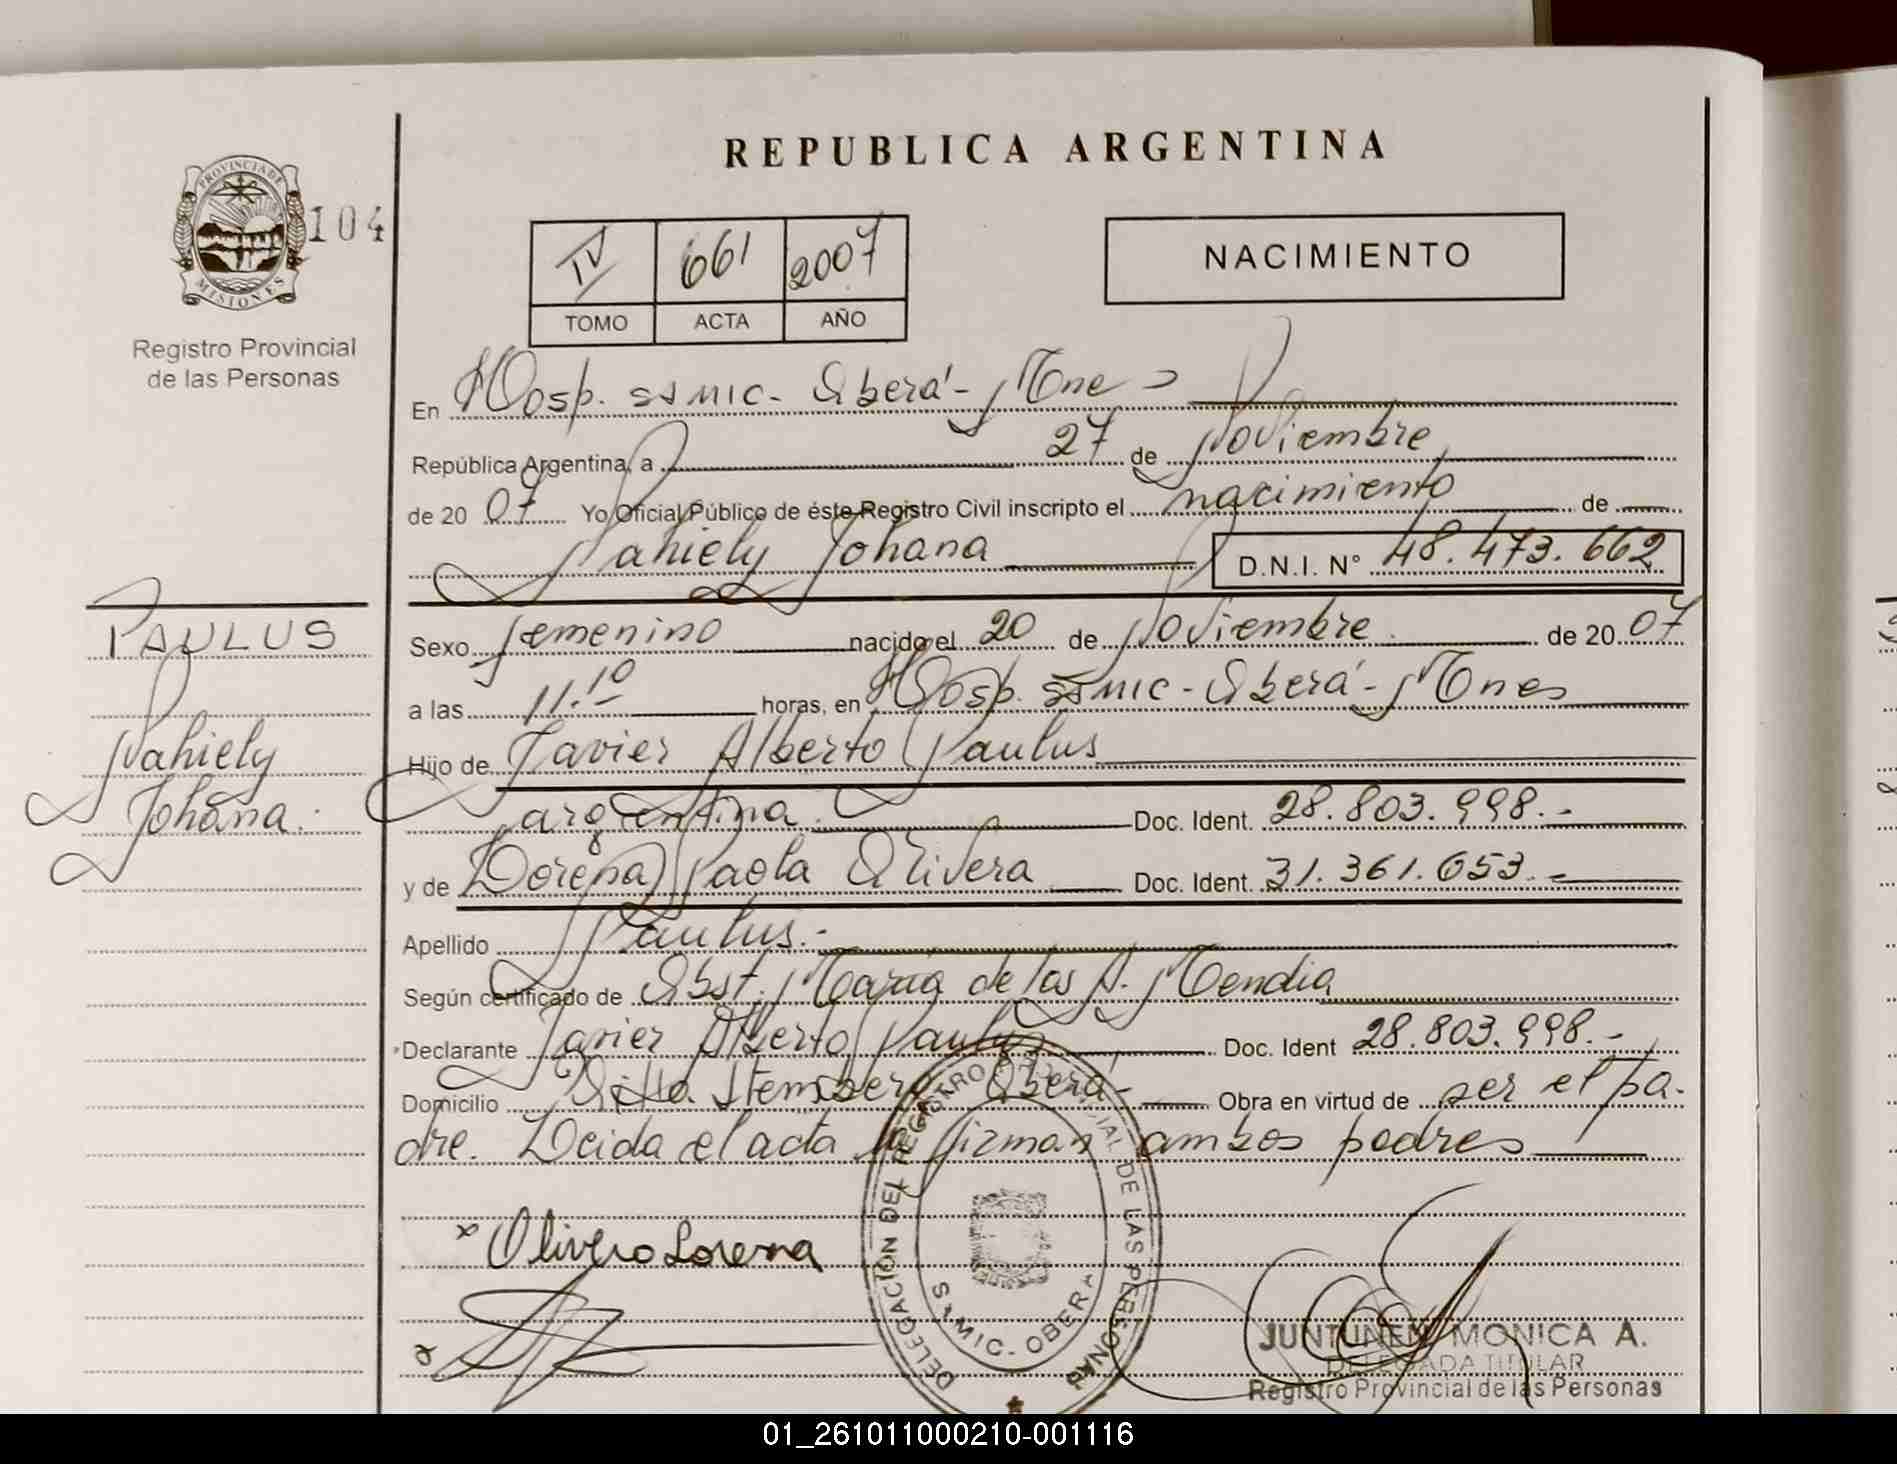 REPUBLICA ARGENTINA
PROVINCIA DE
MISIONES
104
Registro Provincial
de las Personas
IV 661 2007
TOMO ACTA AÑO
NACIMIENTO
En Hosp. SSMIC- Oberá- Mnes
República Argentina, a 27 de Noviembre
de 2007 Yo Oficial Público de éste Registro Civil inscripto el nacimiento de
Nahiely Johana D.N.I. N° 48.473.662
PAULUS
Nahiely
Johana.
Sexo femenino nacido el 20 de Noviembre de 2007
a las 11.10 horas, en Hosp. SSMIC- Oberá- Mnes
Hijo de Javier Alberto Paulus
argentina. Doc. Ident. 28.803.998.-
y de Lorena Paola Olivera Doc. Ident. 31.361.653.-
Apellido Paulus.-
Según certificado de Obst. María de los A. Mendia
Declarante Javier Alberto Paulus Doc. Ident 28.803.998.-
Domicilio Villa Stemberg Oberá- Obra en virtud de ser el pa-
dre. Leida el acta la firman ambos padres
x Olivero Lorena
DELEGACIÓN DEL REGISTRO PROVINCIAL DE LAS PERSONAS
OBERA
JUNTUNEN MONICA A.
DELEGADA TITULAR
Registro Provincial de las Personas
01_261011000210-001116